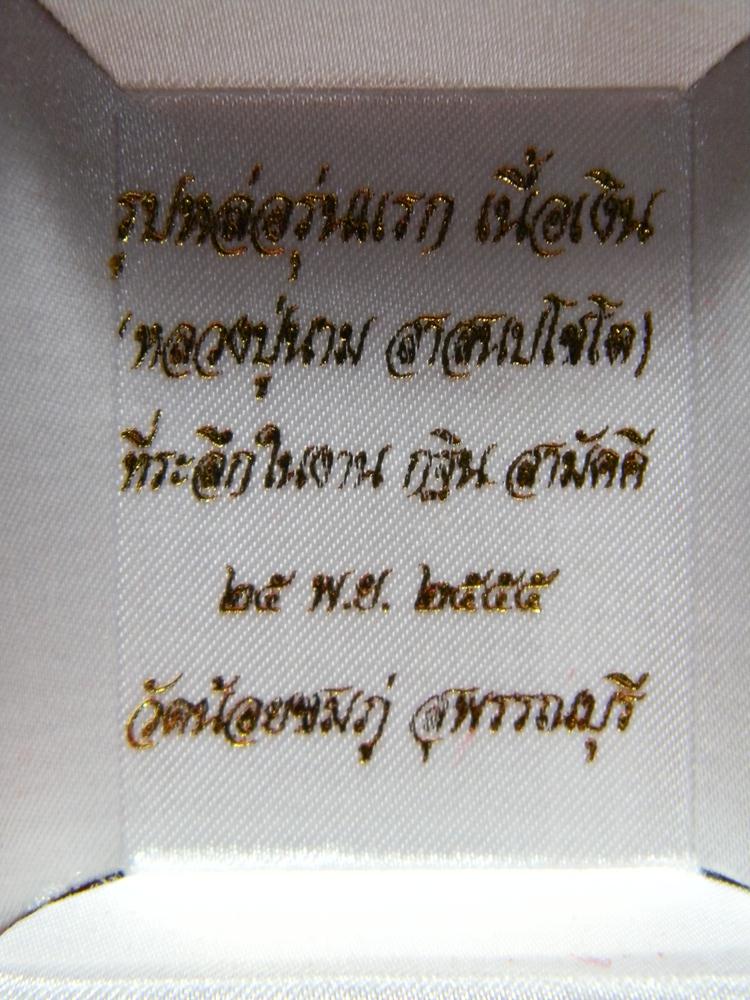 รูปหล่อรุ่นแรก เนื้อเงิน
(หลวงปู่นาม สาสนปโชโต)
ที่ระลึกในงาน กฐิน สามัคคี
๒๕ พ.ย. ๒๕๕๕
วัดน้อยชมภู่ สุพรรณบุรี